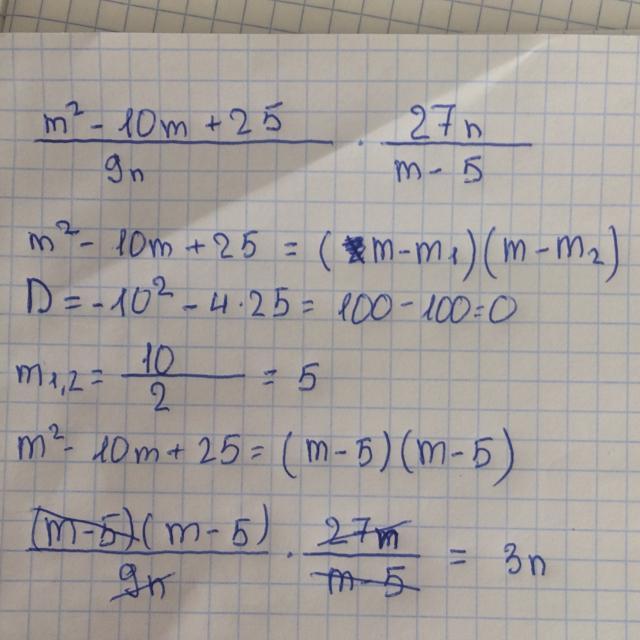 m² - 10m + 25 / 9n · 27n / m - 5
m² - 10m + 25 = (m - m₁)(m - m₂)
D = -10² - 4·25 = 100 - 100 = 0
m₁,₂ = 10 / 2 = 5
m² - 10m + 25 = (m - 5)(m - 5)
(m - 5)(m - 5) / 9n · 27m / m - 5 = 3n